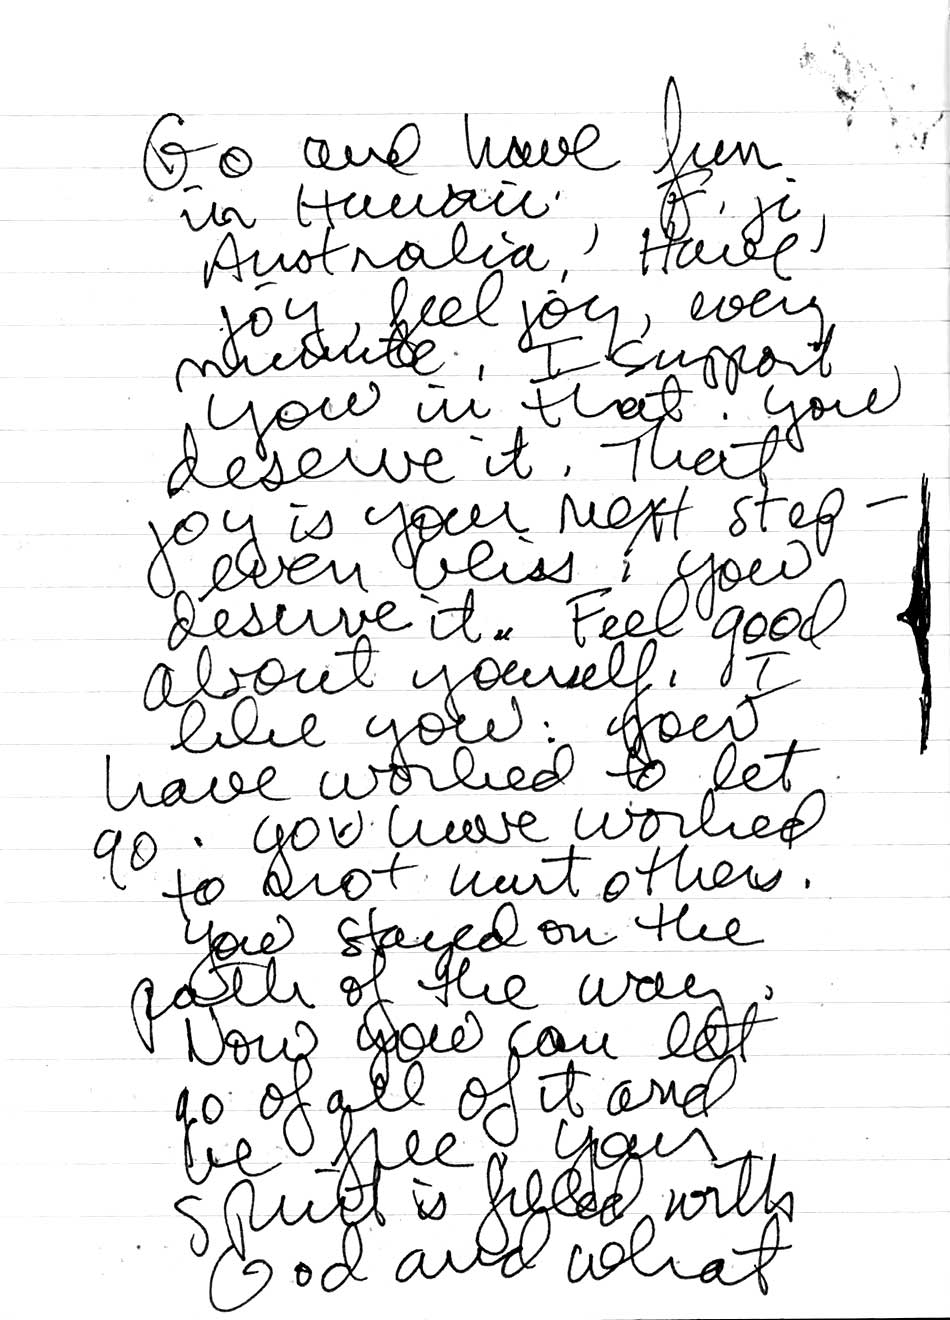 Go and have fun
in Hawaii, Fiji,
Australia! Have
joy, feel joy, every
minute. I support
you in that. You
deserve it. That
joy is your next step –
even bliss; you
deserve it. Feel good
about yourself. I
like you. You
have worked to let
go. You have worked
to not hurt others.
You stayed on the
path of the way.
Now you can let
go of all of it and
be free. Your
spirit is filled with
God and what